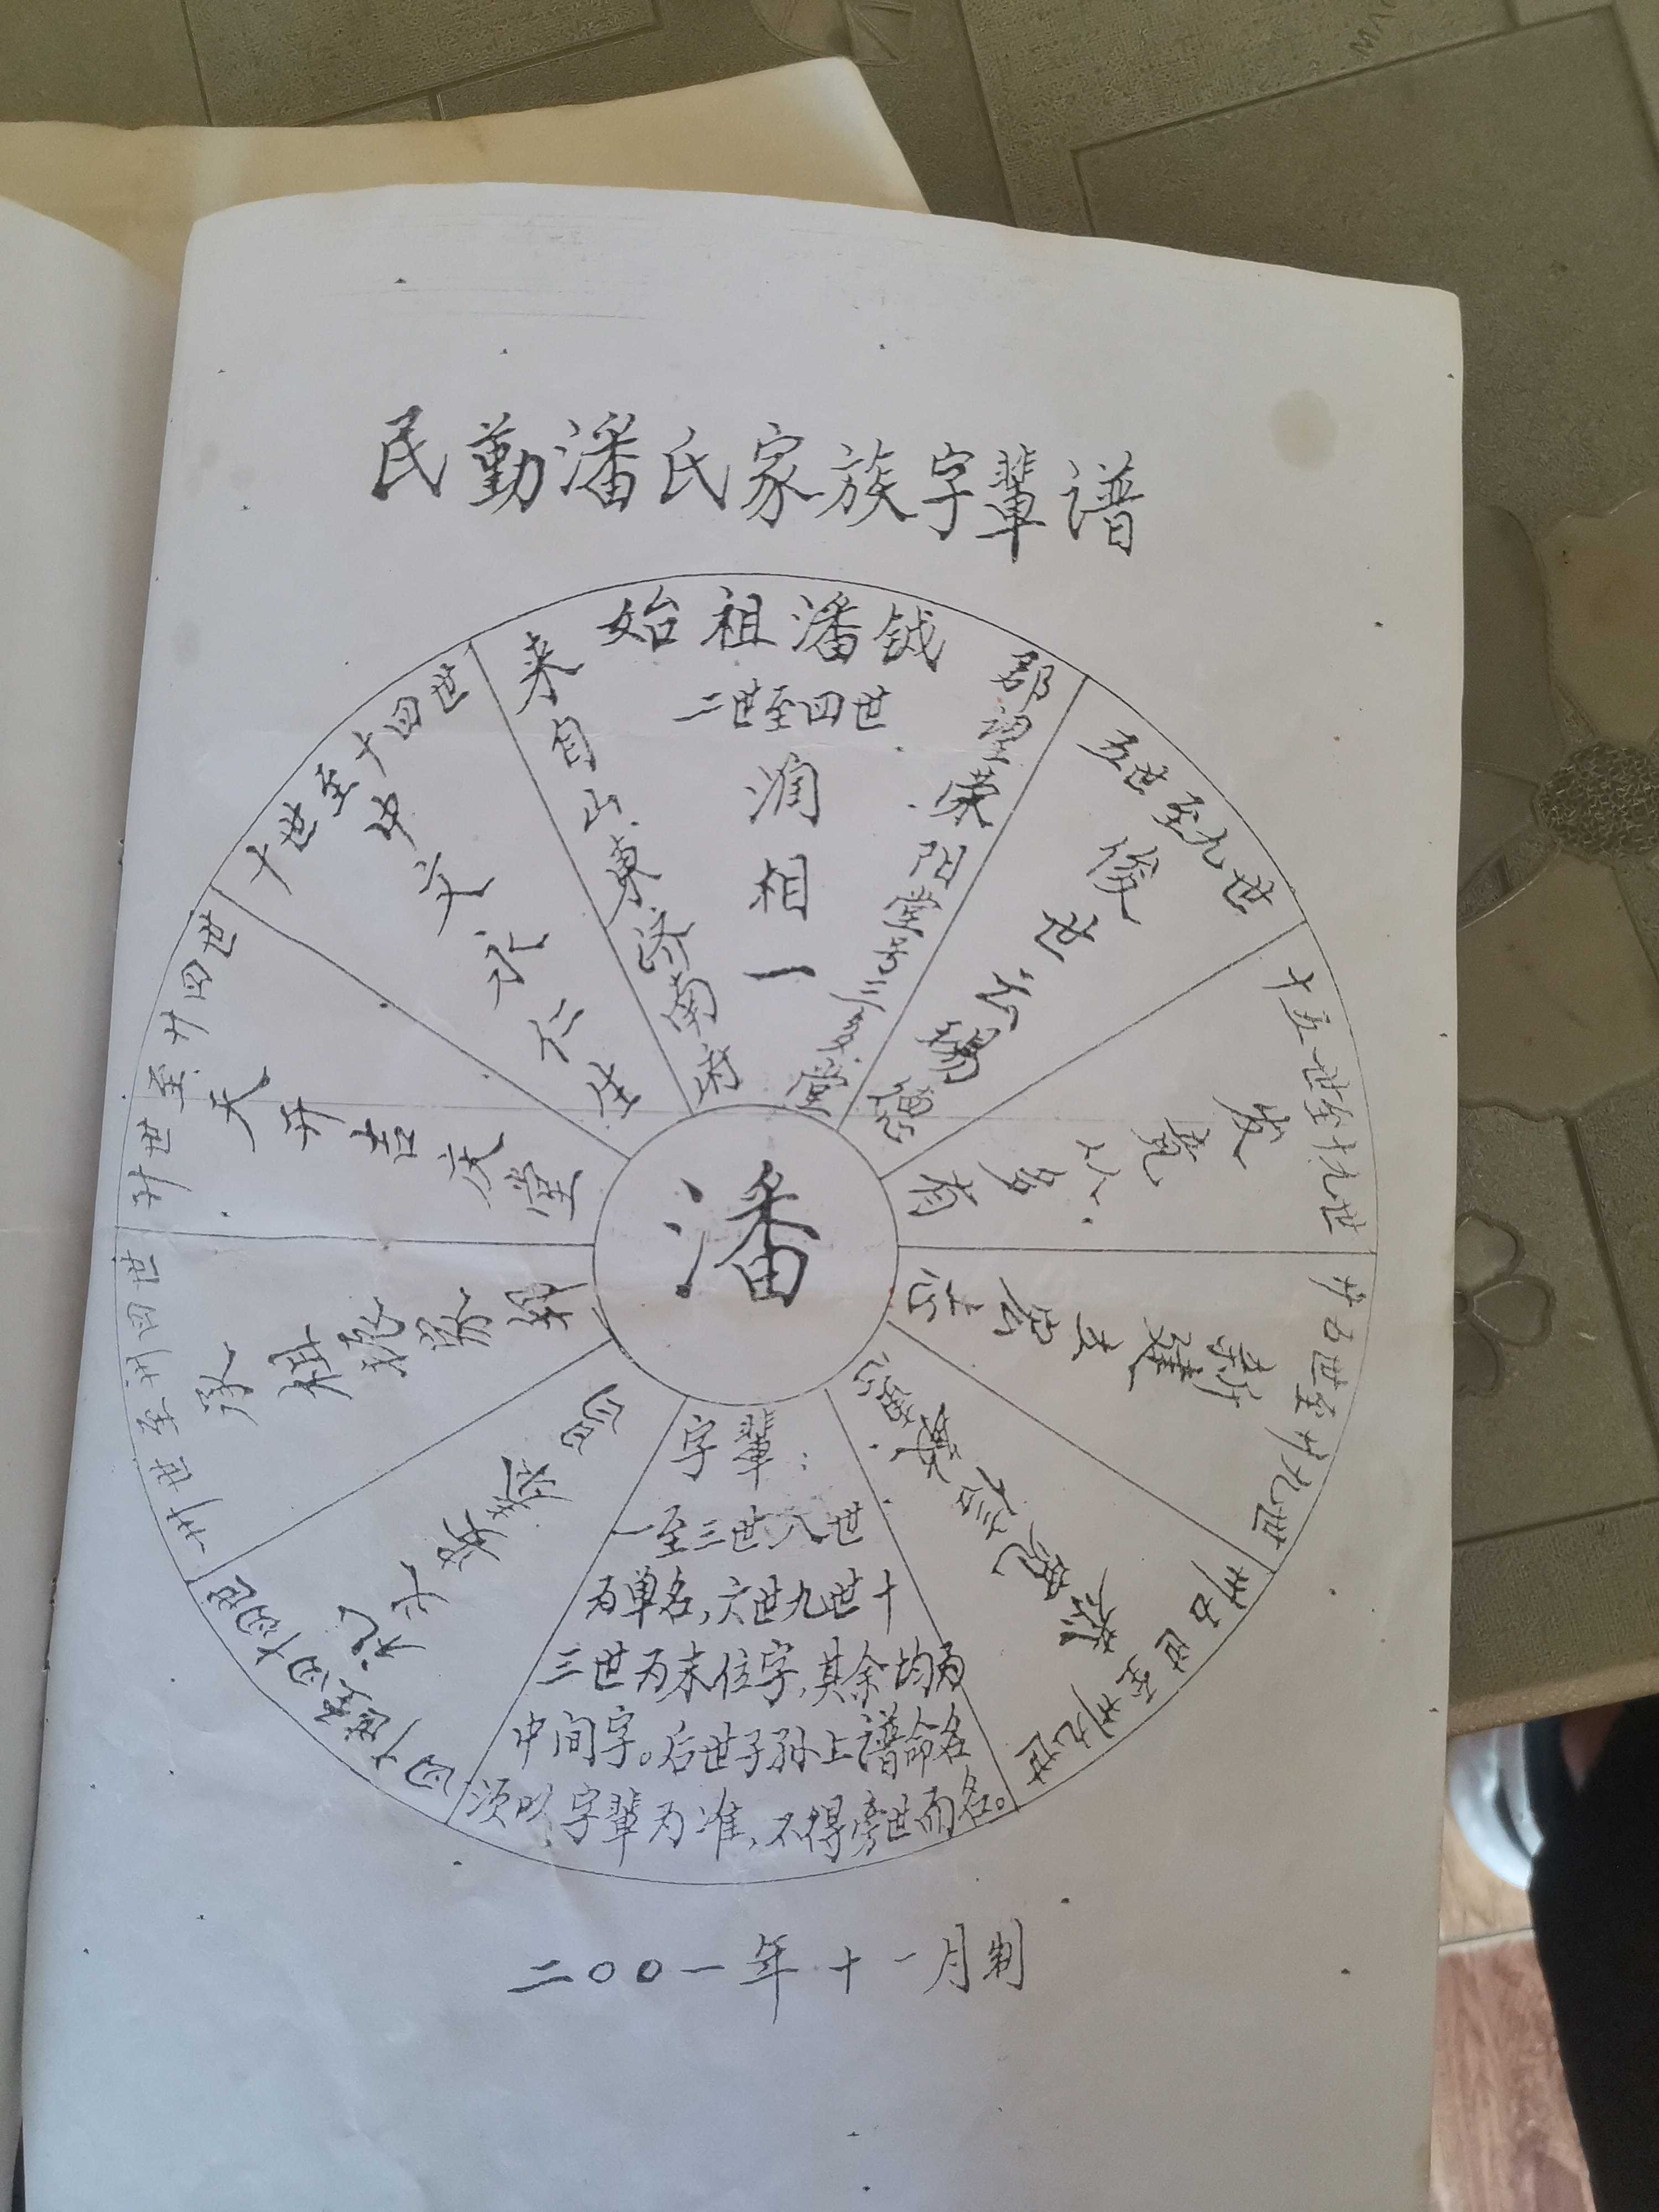 民勤潘氏家族字輩谱
始祖潘钺
来自山東济南府
二世至四世
润相一
郡望荣阳堂号三多堂
五世至九世
俊世云锡德
十世至十四世
中文永仁生
十五世至十九世
发竞以多有
廿世至廿四世
天开吉庆堂
廿五世至廿九世
新建立宏志
卅世至卅四世
承祖振家邦
卅五世至卅九世
四十世至四十四世
潘
字輩：
一至三世八世
为单名，六世九世十
三世为末位字，其余均为
中间字。后世子孙上谱命名
须以字輩为准，不得旁世而名。
二〇〇一年十一月制